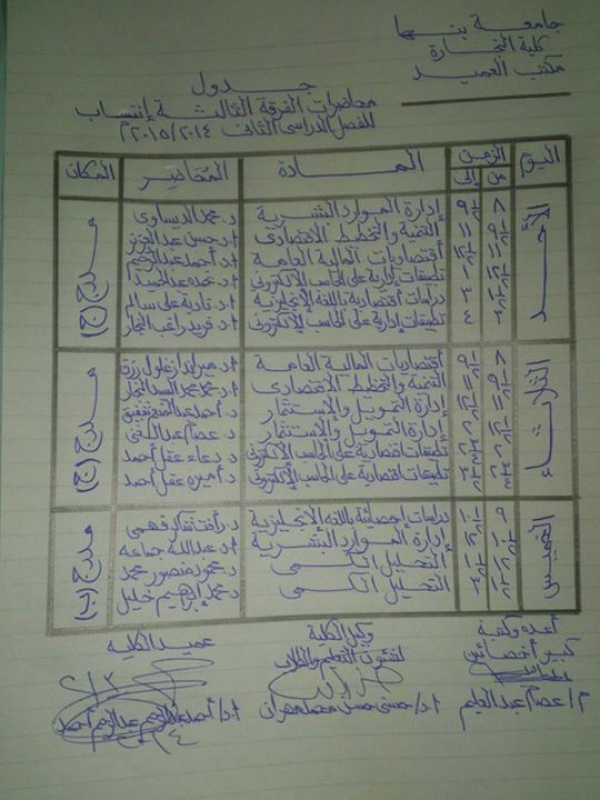 جامعة بنها
كلية التجارة
مكتب العميد
جدول
محاضرات الفرقة الثالثة إنتساب
للفصل الدراسى الثانى ٢٠١٥/٢٠١٤م
اليوم الزمن المادة المحاضر المكان
من إلى
الأحد ٨ ٩½ إدارة الموارد البشرية د. محمد الديساوى مدرج (ج)
٩½ ١١ التنمية والتخطيط الاقتصادى أ.د حسن عبد العزيز
١١ ١٢½ اقتصاديات المالية العامة أ.د أحمد عبد الرحيم
تطبيقات إدارية على الحاسب الإلكترونى
٣ دراسات اقتصادية باللغة الإنجليزية أ.د نادية على سالم
٣ ٤ تطبيقات إدارية على الحاسب الإلكترونى أ.د فريد راغب النجار
الثلاثاء ٨ ٩½ اقتصاديات المالية العامة أ.د ميراندا زغلول رزق مدرج (ج)
٩½ ١١ التنمية والتخطيط الاقتصادى أ.د محمد محمد السيد النجار
١١ ١٢½ إدارة التمويل والإستثمار د. أحمد عبد الفتح شفيق
إدارة التمويل والإستثمار د. عصام عبد الغنى
تطبيقات اقتصادية على الحاسب الإلكترونى د. دعاء عقل أحمد
تطبيقات اقتصادية على الحاسب الإلكترونى د. أميره عقل أحمد
الخميس ٩ ١٠½ دراسات إحصائية باللغة الإنجليزية د. رأفت شاكر فهمى مدرج (ب)
١٠½ ١٢ إدارة الموارد البشرية أ.د عبد الله جماعه
التحليل الكمى د. محمود منصور محمد
التحليل الكمى د. محمد إبراهيم خليل
أعده وكتبه وكيل الكلية عميد الكلية
كبير أخصائين لشئون التعليم والطلاب
م/ عصام عبد العليم أ.د/ حسنى حسن مهران أ.د/ أحمد عبد الرحيم